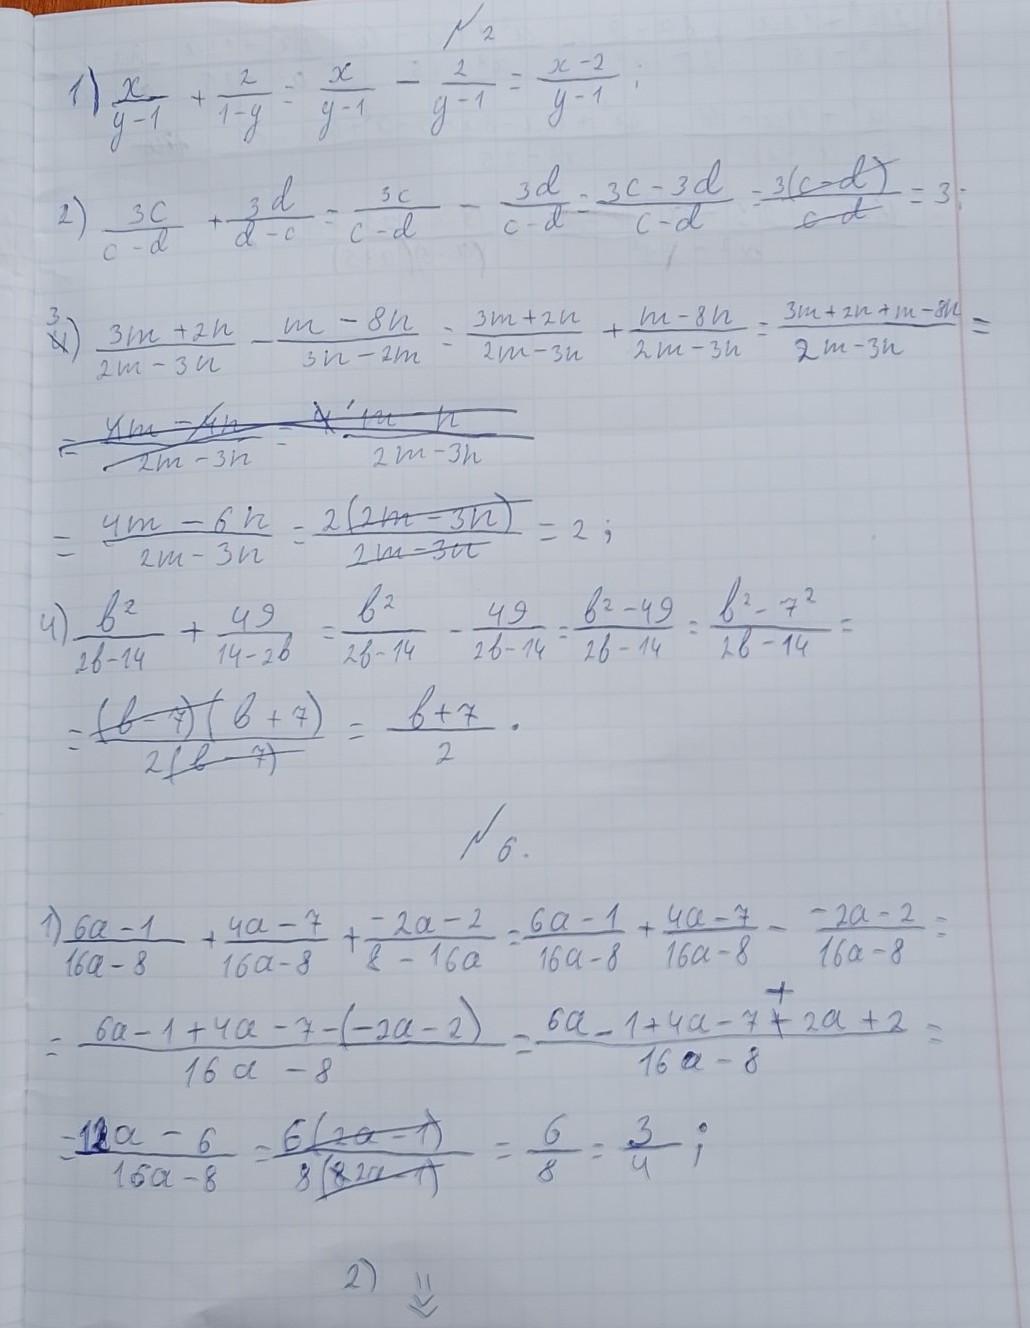 №2
1) x/(y-1) + 2/(1-y) = x/(y-1) - 2/(y-1) = (x-2)/(y-1);
2) 3c/(c-d) + 3d/(d-c) = 3c/(c-d) - 3d/(c-d) = (3c-3d)/(c-d) = 3(c-d)/(c-d) = 3;
3) (3m+2n)/(2m-3n) - (m-8n)/(3n-2m) = (3m+2n)/(2m-3n) + (m-8n)/(2m-3n) = (3m+2n+m-8n)/(2m-3n) =
= (4m-4n)/(2m-3n) = 4 m-n/(2m-3n)
= (4m-6n)/(2m-3n) = 2(2m-3n)/(2m-3n) = 2;
4) b²/(2b-14) + 49/(14-2b) = b²/(2b-14) - 49/(2b-14) = (b²-49)/(2b-14) = (b²-7²)/(2b-14) =
= (b-7)(b+7)/2(b-7) = (b+7)/2.
№6.
1) (6a-1)/(16a-8) + (4a-7)/(16a-8) + (-2a-2)/(8-16a) = (6a-1)/(16a-8) + (4a-7)/(16a-8) - (-2a-2)/(16a-8) =
= (6a-1+4a-7-(-2a-2))/(16a-8) = (6a-1+4a-7+2a+2)/(16a-8) =
= (12a-6)/(16a-8) = 6(2a-1)/8(2a-1) = 6/8 = 3/4;
2) ⇓